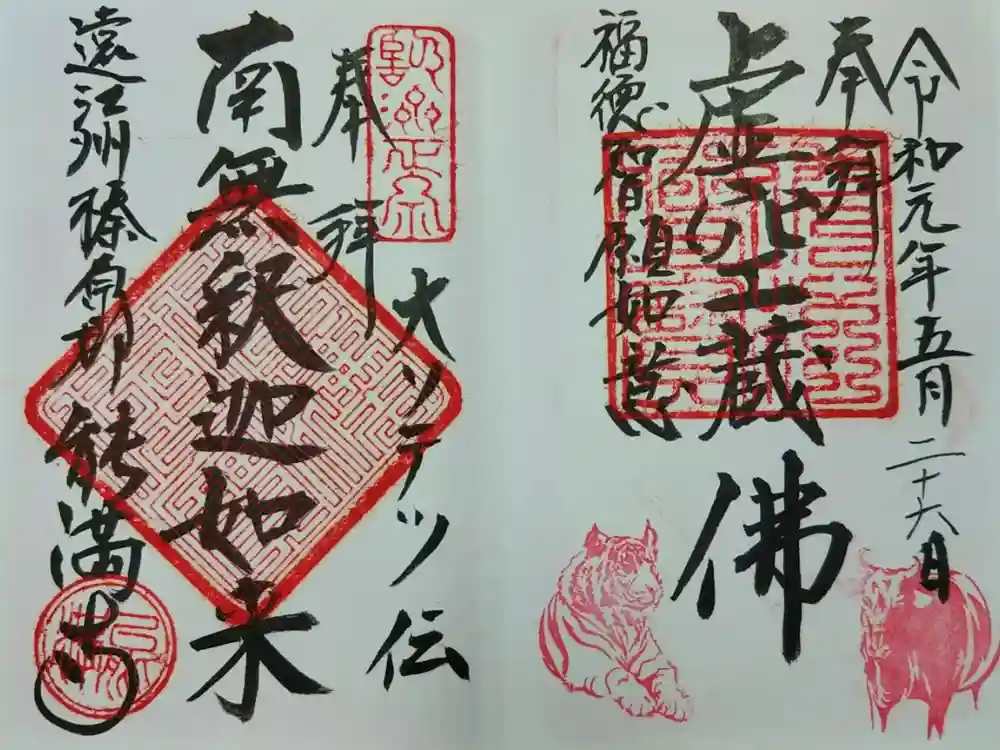 令和元年五月二十六日
奉拝
虚空蔵佛
福徳和智願如意
奉拝
大ソテツ伝
南無釈迦如来
遠江州榛原郡 能満寺